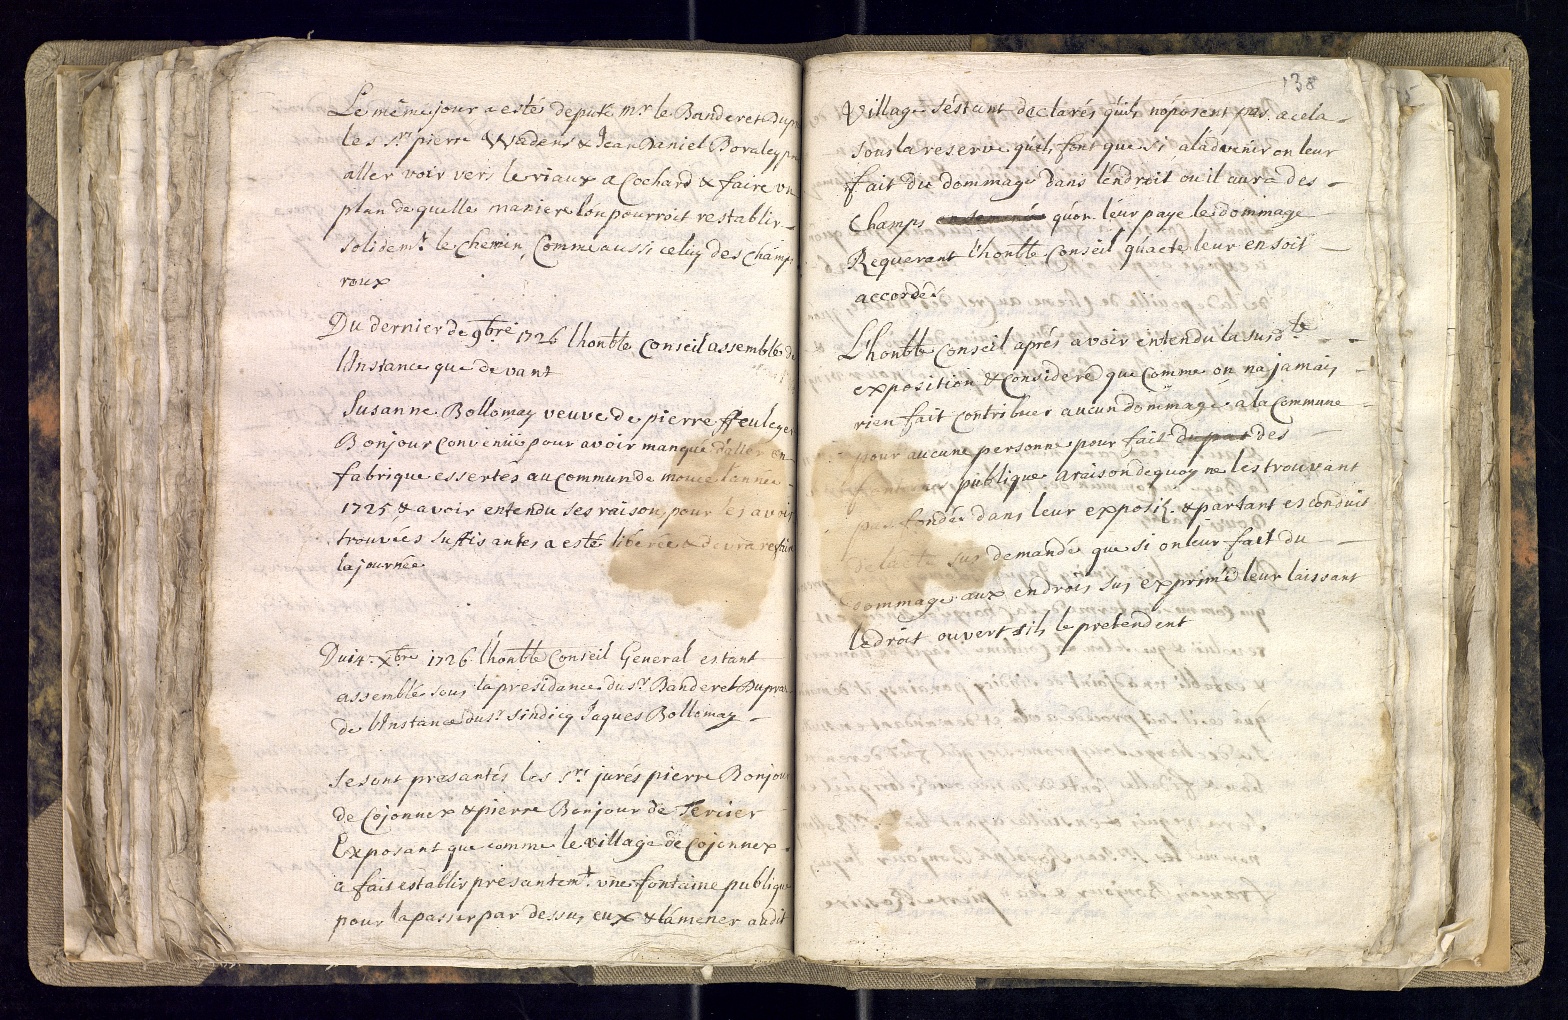 Le même jour a estés deputé mr. le Banderet Dupra
les srs. pierre Wadens & Jean Daniel Boraley pr
aller voir vers le riaux a Cochard & faire vn
plan de quelle maniere lon pourroit restablir
solidemt. le Chemin, Comme aussi celuy des Champ
roux
Du dernier de 9bre 1726 lhonble Conseil assemblés de
lInstance que devant
Susanne Bollomay veuve de pierre ffeu leger
Bonjour Convenüe pour avoir manqué d'aller en
fabrique essertes au Commun de moucé l'année
1725 & avoir entendu ses raison pour les avoir
trouvées suffisantes a esté libérée & devra refaire
la journée
Du 14e. Xbre 1726 l'honble Conseil General estant
assemblé sous la presidance du sr. Banderet Dupra
de l'Instance du sr. sindicq Jaques Bollomay
Se sont presantés les srs. jurés pierre Bonjour
de Cojonnex & pierre Bonjour de Tercier
Exposant que comme le village de Cojonnex
a fait establir presantemt. vne fontaine publique
pour la passer par dessus eux & lamener audit
138
Village s'estant declarés quils noposent pas a cela
sous la reserve quils font que si aladvenir on leur
fait du dommage dans l'endroit ou il aura des
Champs quon leur paye le dommage
Requerant lhonble Conseil qu'acte leur en soit
accordé.
Lhonble Conseil aprés avoir entendu la susdte
exposition & Consideré que Comme on na jamais
rien fait contribuer aucun dommage a la Commune
pour aucune personne pour fait du pas des
publique a raison dequoy ne les trouvant
pas fondée dans leur exposit. & partant esconduis
de lacte sus demandée que si on leur fait du
dommage aux endrois sus exprimé leur laissant
le droit ouvert sils le pretendent